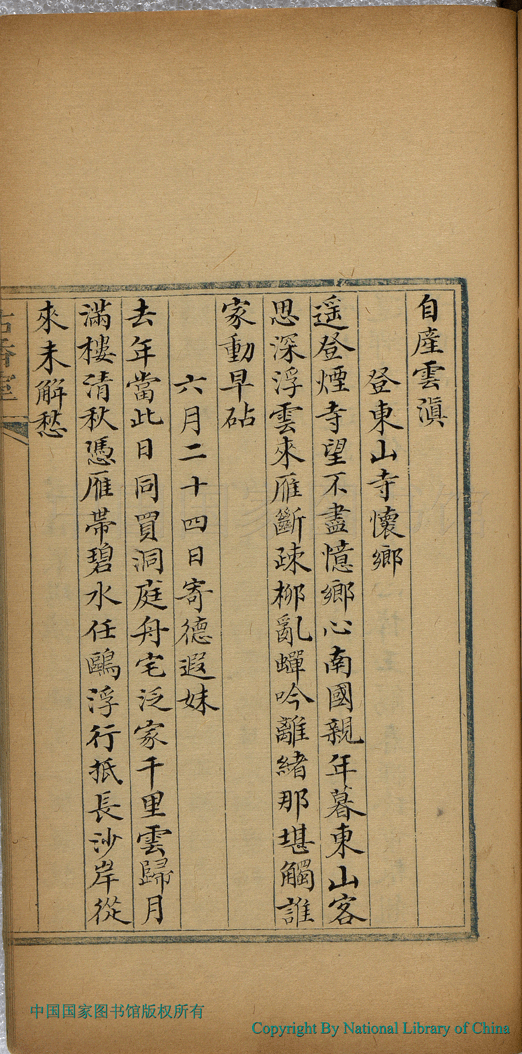 自產雲滇
登東山寺懷鄉
遥登煙寺望不盡憶鄉心南國親年暮東山客
思深浮雲來雁斷疎柳亂蟬吟離緒那堪觸誰
家動早砧
六月二十四日寄德遐妹
去年當此日同買洞庭舟宅泛家千里雲歸月
滿樓清秋憑雁帶碧水任鷗浮行抵長沙岸從
來未解愁
香室
中国国家图书馆版权所有
Copyright By National Library of China